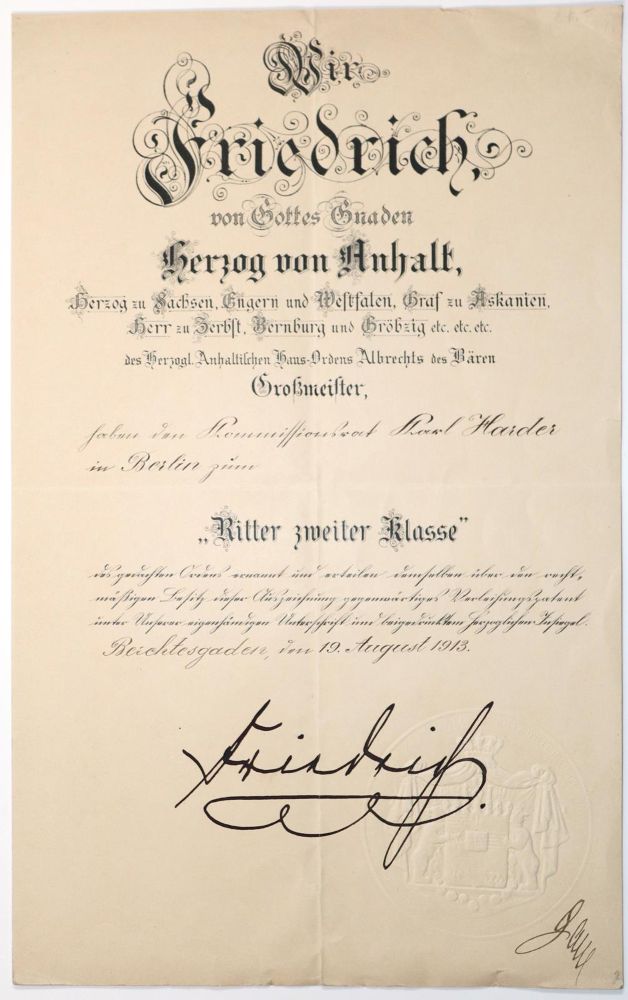 Wir
Friedrich,
von Gottes Gnaden
Herzog von Anhalt,
Herzog zu Sachsen, Engern und Westfalen, Graf zu Askanien,
Herr zu Zerbst, Bernburg und Gröbzig etc. etc. etc.
des Herzogl. Anhaltischen Haus-Ordens Albrechts des Bären
Großmeister,
haben den Kommissionsrat Karl Harder
in Berlin zum
„Ritter zweiter Klasse"
des gedachten Ordens ernannt und erteilen demselben über den recht-
mäßigen Besitz dieser Auszeichnung gegenwärtiges Verleihungspatent
unter Unserer eigenhändigen Unterschrift und beigedrucktem Herzoglichen Insiegel.
Berchtesgaden, den 19. August 1913.
Friedrich.